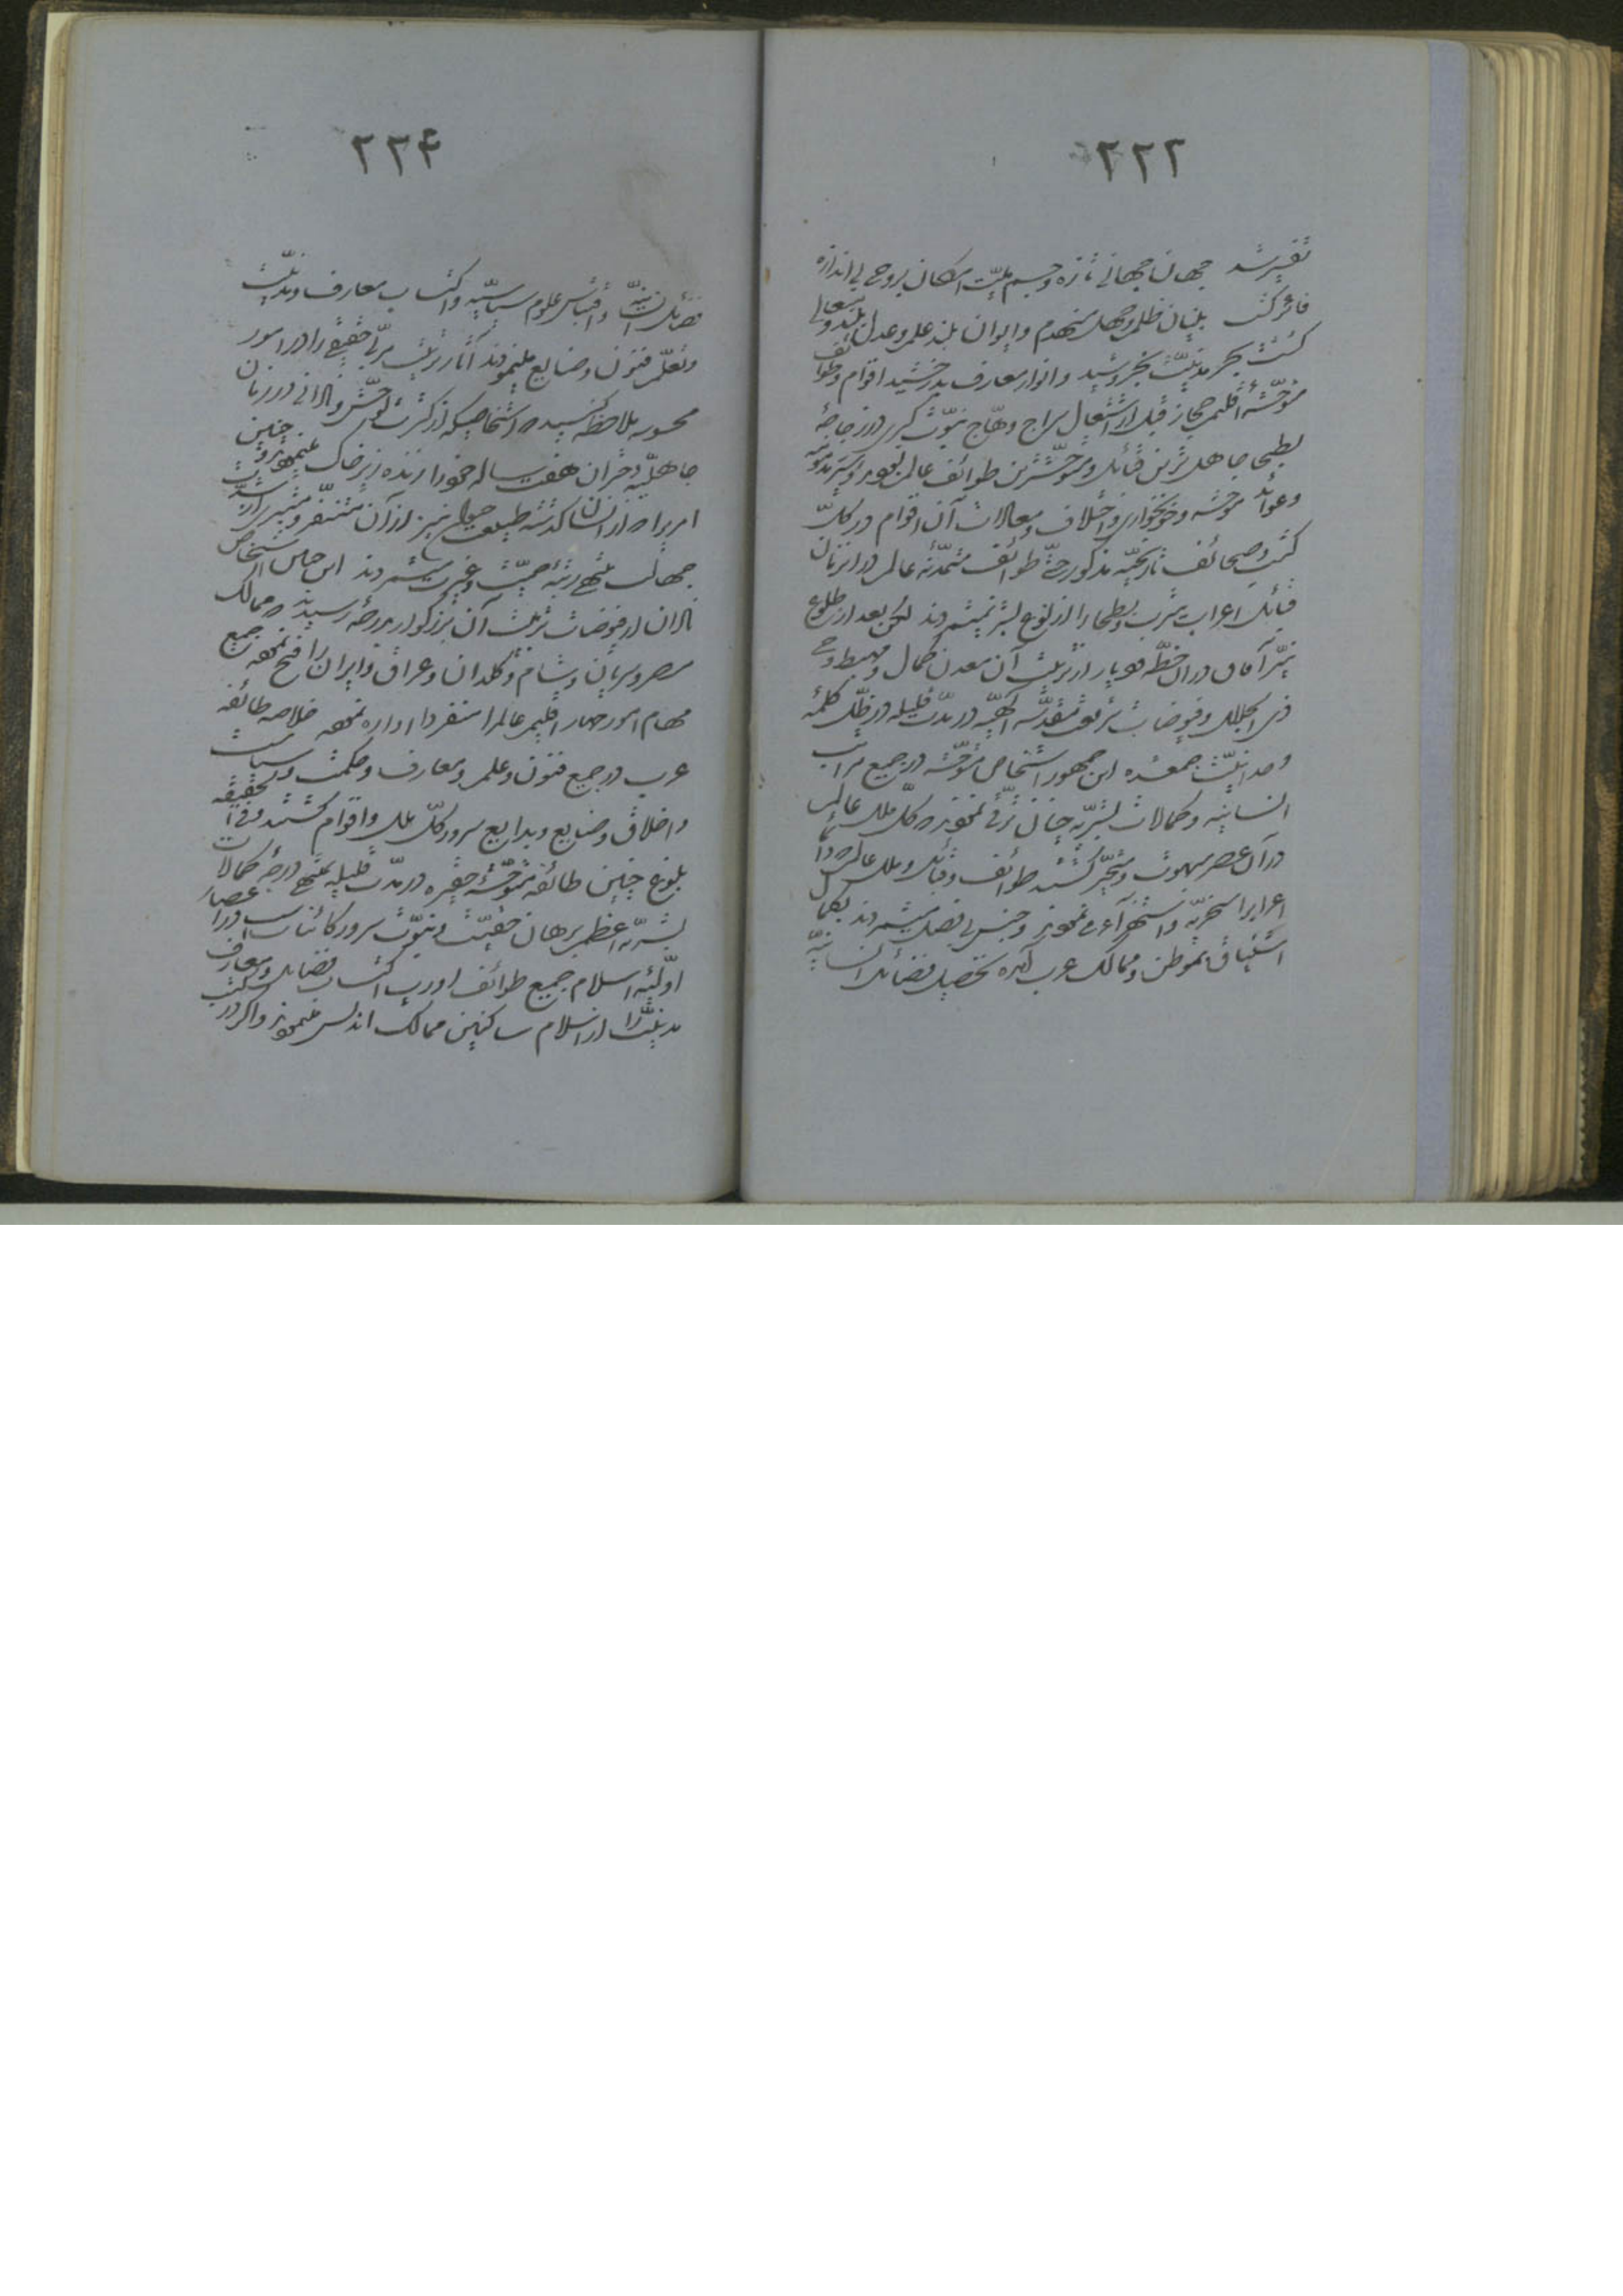 ٢٢٢
تغییر شد جهان جهانی تازه و جسم میّت امکان بروحی بی اندازه
فائز گشت بنیان ظلم و جهل منهدم و ایوان بلند علم و عدل بلند و متعالی
گشت بحر مدنیّت بخروشید و انوار معارف بدرخشید اقوام و طوائف
متوحّشهٔ اقلیم حجاز قبل از اشتعال سراج وهّاج نبوّت کبری در زجاجهٔ
بطحا جاهل ترین قبائل و متوحّش ترین طوائف عالم بودند و سیر مذمومه
و عوائد موحشه و خونخواری و اختلاف و معادات آن اقوام در کلّ
کتب و صحائف تاریخیّه مذکور حتّی طوائف متمدّنهٔ عالم در آن زمان
قبائل اعراب یثرب و بطحا را از نوع بشر نمیشمردند لکن بعد از طلوع
نیّر آفاق در آن خطّه و دیار از تربیت آن معدن کمال و مهبط وحی
ذی الجلال و فیوضات شریعت مقدّسهٔ الهیّه در مدّت قلیله در ظلّ کلمهٔ
وحدانیّت جمع شده این جمهور اشخاص متوحّشه در جمیع مراتب
انسانیّه و کمالات بشریّه چنان ترقّی نمودند که کلّ ملل عالم
در آن عصر مبهوت و متحیّر گشتند طوائف و قبائل و ملل عالم که دائما
اعراب را سخریّه و استهزاء می نمودند و جنس بی فضل میشمردند بکمال
اشتیاق بموطن و ممالک عرب آمده تحصیل فضائل انسانیّه
٢٢۴
فضائل انسانیّه و اقتباس علوم سیاسیّه و اکتساب معارف و مدنیّت
و تعلّم فنون و صنایع مینمودند آثار تربیت مربّی حقیقی را در امور
محسوسه ملاحظه کنید که اشخاصیکه از کثرت توحّش و نادانی در زمان
جاهلیّه دختران هفت ساله خود را زنده زیر خاک مینمودند و چنین
امری را که از انسان گذشته طبیعت حیوان نیز از آن متنفّر و متبرّی از شدّت
جهالت منتهی رتبهٔ حمیّت و غیرت میشمردند این چنین اشخاص
نادان از فیوضات تربیت آن بزرگوار بدرجهٔ رسیدند که ممالک
مصر و سریان و شام و کلدان و عراق و ایران را فتح نموده جمیع
مهام امور چهار اقلیم عالم را منفردا اداره نمودند خلاصه طائفه
عرب در جمیع فنون و علم و معارف و حکمت و سیاست
و اخلاق و صنایع و بدایع سرور کلّ ملل و اقوام گشتند و فی الحقیقه
بلوغ چنین طائفهٔ متوحّشهٔ حقیره در مدّت قلیله بمنتهی درجهٔ کمالات
بشریّه اعظم برهان حقیّت و نبوّت سرور کائنات است در اعصار
اوّلیّهٔ اسلام جمیع طوائف اورپ اکتساب فضائل و معارف
مدنیّت را از اسلام ساکنین ممالک اندلس مینمودند و اگر در کتب